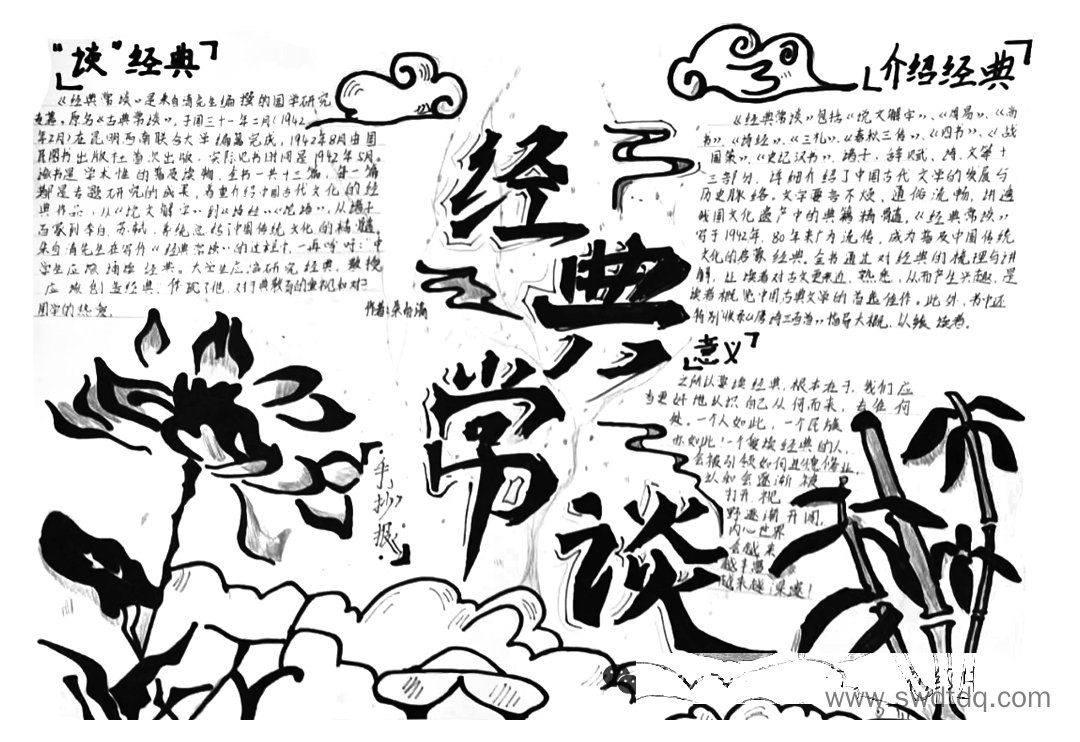 “谈”经典
《经典常谈》是朱自清先生编撰的国学研究
原名《古典常谈》,于国三十一年二月(1942
年2月)在昆明西南联合大学编篡完成,1942年8月由国
民图书出版社首次出版,实际见书时间是1942年5月。
该书是学术性的普及读物,全书一共十三篇,每一篇
都是专题研究的成果,着重介绍中国古代文化的经
典作品,从《说文解字》到《诗经》《尚书》,从诸子
百家到李白、苏轼,系统总结了中国传统文化的精髓,
朱自清先生在写作《经典常谈》的过程中,一再呼吁:中
学生应该诵读经典。大学生应该研究经典,教授
应该创造经典,体现了他对经典教育的重视和对
国学的热爱。
作者:朱自清
经典常谈
手抄报
介绍经典
《经典常谈》包括《说文解字》、《周易》、《尚
书》、《诗经》、《三礼》、《春秋三传》、《四书》、《战
国策》、《史记汉书》、诸子、辞赋、诗、文等十
三部分,详细介绍了中国古代文学的发展与
历史脉络。文字要言不烦,通俗流畅,讲透
我国文化遗产中的典籍精髓,《经典常谈》
写于1942年,80年来广为流传,成为普及中国传统
文化的启蒙经典。全书通过对经典的梳理与讲
解,让读者对古文更亲近、熟悉,从而产生兴趣,是
读者概览中国古典文学的首选佳作。此外,书中还
特别收录《唐诗三百首》指导大概,以飨读者。
意义
之所以要读经典,根本在于,我们应
当更好地认识自己从何而来,去往何
处。一个人如此,一个民族
亦如此!一个爱读经典的人,
会被引领如何进德修业,
认知会逐渐被
打开,视
野逐渐开阔,
内心世界
会越来
越丰富
越来越深邃!
www.swdtdq.com